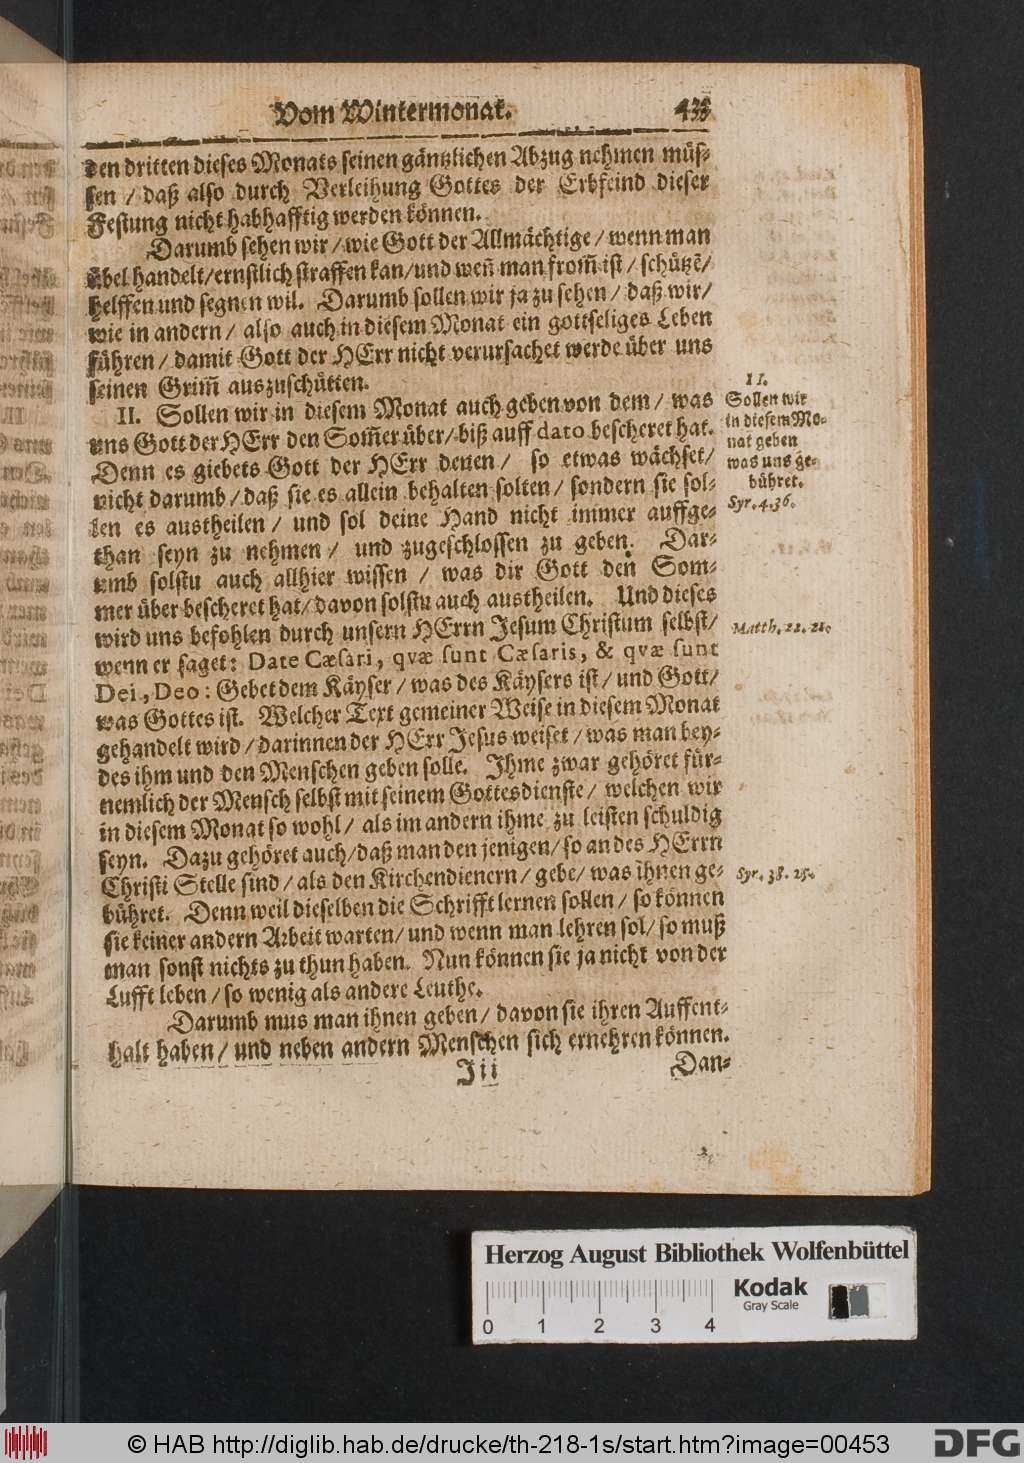 Vom Wintermonat.
den dritten dieses Monats seinen gäntzlichen Abzug nehmen müs-
sen / daß also durch Verleihung Gottes der Erbfeind dieser
Festung nicht habhafftig werden können.
Darumb sehen wir / wie Gott der Allmächtige / wenn man
übel handelt / ernstlich straffen kan / und weñ man from̃ ist / schützẽ /
helffen und segnen wil. Darumb sollen wir ja zu sehen / daß wir /
wie in andern / also auch in diesem Monat ein gottseliges Leben
führen / damit Gott der HErr nicht verursachet werde über uns
seinen Grim̃ auszuschütten.
II. Sollen wir in diesem Monat auch geben von dem / was
uns Gott der HErr den Som̃er über / biß auff dato bescheret hat.
Denn es giebets Gott der HErr denen / so etwas wächset /
nicht darumb / daß sie es allein behalten solten / sondern sie sol-
len es austheilen / und sol deine Hand nicht immer auffge-
than seyn zu nehmen / und zugeschlossen zu geben. Dar-
umb solstu auch allhier wissen / was dir Gott den Som-
mer über bescheret hat / davon solstu auch austheilen. Und dieses
wird uns befohlen durch unsern HErrn Jesum Christum selbst /
wenn er saget: Date Cæsari, qvæ sunt Cæsaris, & qvæ sunt
Dei, Deo: Gebet dem Käyser / was des Käysers ist / und Gott /
was Gottes ist. Welcher Text gemeiner Weise in diesem Monat
gehandelt wird / darinnen der HErr Jesus weiset / was man bey-
des ihm und den Menschen geben solle. Ihme zwar gehöret für-
nemlich der Mensch selbst mit seinem Gottesdienste / welchen wir
in diesem Monat so wohl / als im andern ihme zu leisten schuldig
seyn. Dazu gehöret auch / daß man den jenigen / so an des HErrn
Christi Stelle sind / als den Kirchendienern / gebe / was ihnen ge-
bühret. Denn weil dieselben die Schrifft lernen sollen / so können
sie keiner andern Arbeit warten / und wenn man lehren sol / so muß
man sonst nichts zu thun haben. Nun können sie ja nicht von der
Lufft leben / so wenig als andere Leuthe.
Darumb mus man ihnen geben / davon sie ihren Auffent-
halt haben / und neben andern Menschen sich ernehren können.
Jii Dan-
II.
Sollen wir
in diesem Mo-
nat geben
was uns ge-
bühret.
Syr. 4. 36.
Matth. 22. 21.
Syr. 38. 25.
Herzog August Bibliothek Wolfenbüttel
Kodak
Gray Scale
0 1 2 3 4
© HAB http://diglib.hab.de/drucke/th-218-1s/start.htm?image=00453
DFG